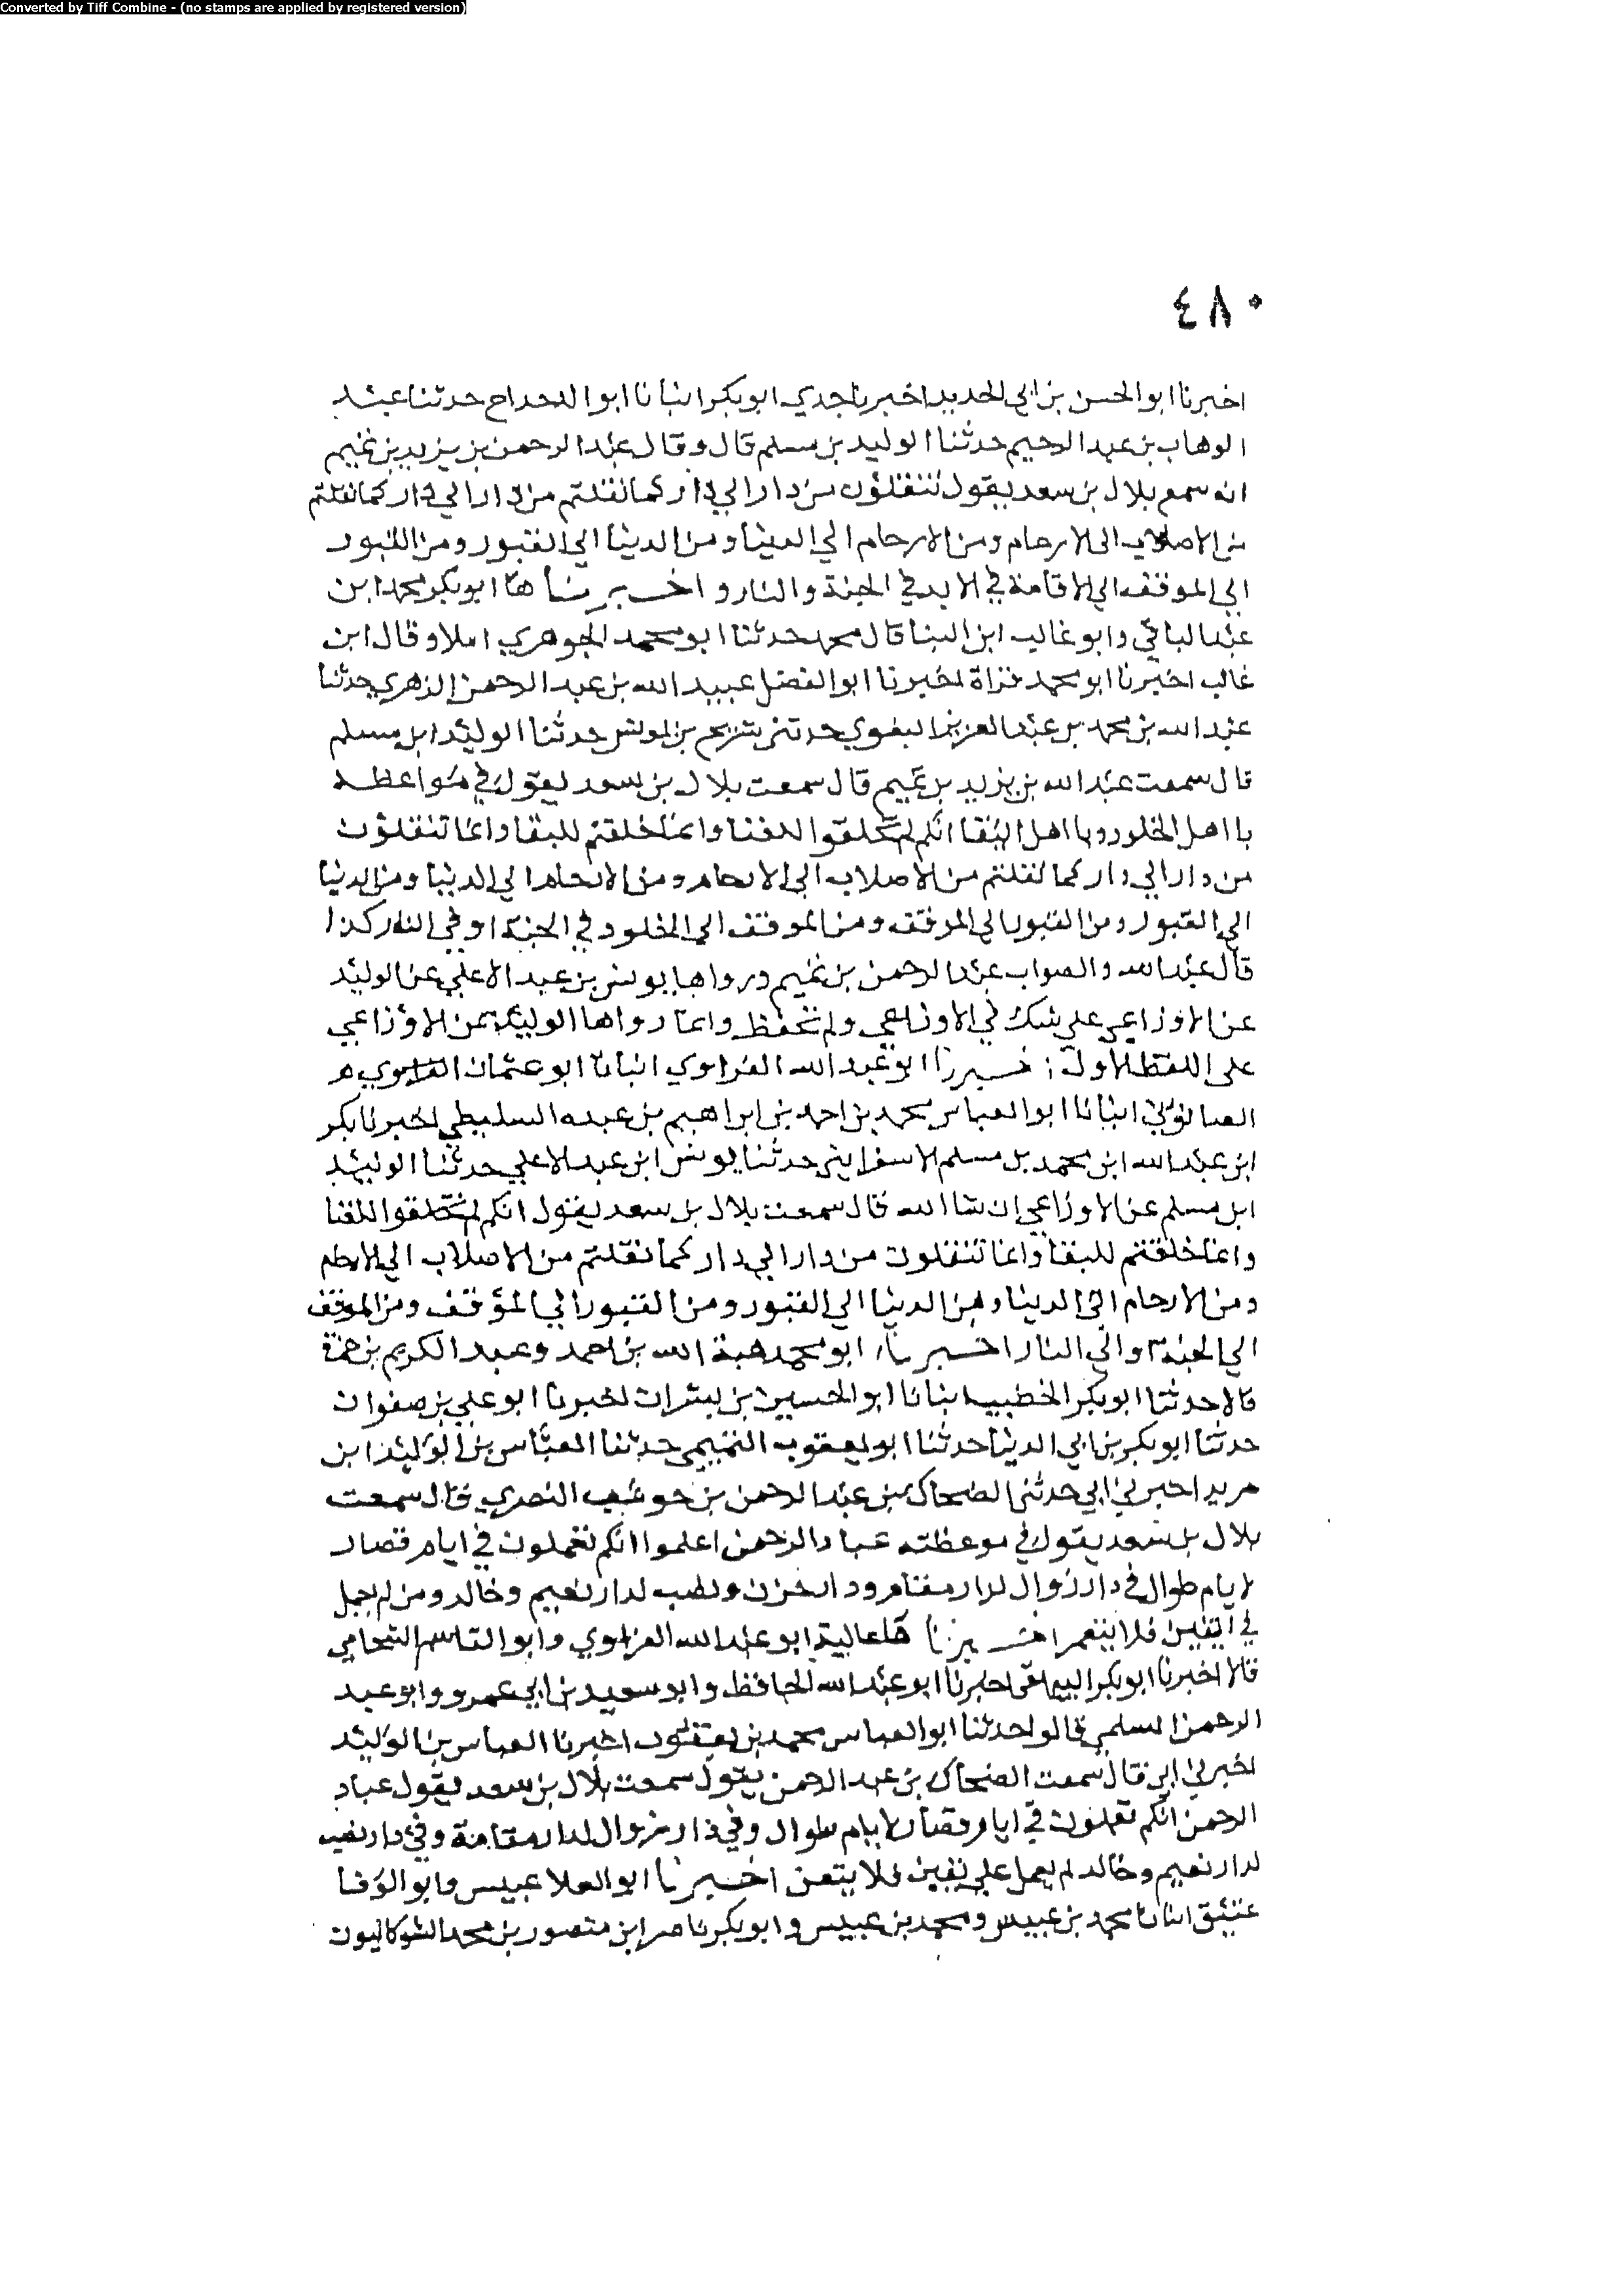 Converted by Tiff Combine - (no stamps are applied by registered version)
٤٨٠
اخبرنا ابو الحسن بن ابي الحديد اخبرنا جدي ابو بكر انبانا ابو الدحداح حدثنا عبد
الوهاب بن عبد الرحيم حدثنا الوليد بن مسلم قال وقال عبد الرحمن بن يزيد بن تميم
انه سمع بلال بن سعد يقول تنقلون من دار الي دار كما نقلتم من دار الي دار كما نقلتم
من الاصلاب الى الارحام ومن الارحام الي الدنيا ومن الدنيا الي القبور ومن القبور
الي الموقف الي الاقامة في الابد في الجنة والنار و اخبرنا ها ابو بكر محمد ابن
عبد الباقي وابو غالب ابن البنا قال محمد حدثنا ابو محمد الجوهري املا وقال ابن
غالب اخبرنا ابو محمد قراة اخبرنا ابو الفضل عبيد الله بن عبد الرحمن الزهري حدثنا
عبد الله بن محمد بن عبد العزيز البغوي حدثني سريج بن يونس حدثنا الوليد ابن مسلم
قال سمعت عبد الله بن يزيد بن تميم قال سمعت بلال بن سعد يقول في مواعظه
يا اهل الخلود ويا اهل البقا انكم لم تخلقوا للفنا وانما خلقتم للبقا وانما تنقلون
من دار الي دار كما نقلتم من الاصلاب الي الارحام ومن الارحام الي الدنيا ومن الدنيا
الي القبور ومن القبور الي الموقف ومن الموقف الي الخلود في الجنة او في النار كذا
قال عبد الله والصواب عبد الرحمن بن تميم ورواها يونس بن عبد الاعلي عن الوليد
عن الاوزاعي علي شك في الاوزاعي ولم تحفظ وانما رواها الوليد عن الاوزاعي
على اللفظ الاول اخبرنا ابو عبد الله الفراوي انبانا ابو عثمان
الصابوني انبانا ابو العباس محمد بن احمد بن ابراهيم بن عبده السليطي اخبرنا بكر
ابن عبد الله ابن محمد بن مسلم الاسفرايني حدثنا يونس ابن عبد الاعلي حدثنا الوليد
ابن مسلم عن الاوزاعي ان شا الله قال سمعت بلال بن سعد يقول انكم لم تخلقوا للفنا
وانما خلقتم للبقا وانما تنقلون من دار الي دار كما نقلتم من الاصلاب الي الارحام
ومن الارحام الى الدنيا ومن الدنيا الي القبور ومن القبور الي الموقف ومن الموقف
الي الجنة او الي النار اخبرنا ابو محمد هبة الله بن احمد وعبد الكريم بن حمزة
قالا حدثنا ابو بكر الخطيب انبانا ابو الحسين بن بشران اخبرنا ابو علي بن صفوان
حدثنا ابو بكر بن ابي الدنيا حدثنا ابو يعقوب التميمي حدثنا العباس بن الوليد ابن
مريد اخبرني ابي حدثني الضحاك بن عبد الرحمن بن حوشب النصري قال سمعت
بلال بن سعد يقول في موعظته عباد الرحمن اعلموا انكم تعملون في ايام قصار
لايام طوال في دار زوال لدار مقام ودار حزن ونصب لدار نعيم وخالد ومن لم يعمل
في اليقين فلا يتعن اخبرنا ها عالية ابو عبد الله الفراوي وابو القاسم الشحامي
قالا اخبرنا ابو بكر البيهقي اخبرنا ابو عبد الله الحافظ وابو سعيد بن ابي عمرو وابو عبد
الرحمن السلمي قالوا حدثنا ابو العباس محمد بن يعقوب اخبرنا العباس بن الوليد
اخبرني ابي قال سمعت الضحاك بن عبد الرحمن يقول سمعت بلال بن سعد يقول عباد
الرحمن انكم تعملون في ايام قصار لايام طوال وفي دار زوال لدار مقامة وفي دار نصب
لدار نعيم وخالد لم يعمل علي يقين فلا يتعن اخبرنا ابو العلا عبيس وابو الوفا
عتيق ابنا محمد بن عبيس ومحمد بن عبيس وابو بكر ناصر ابن منصور بن محمد الشوكانيون